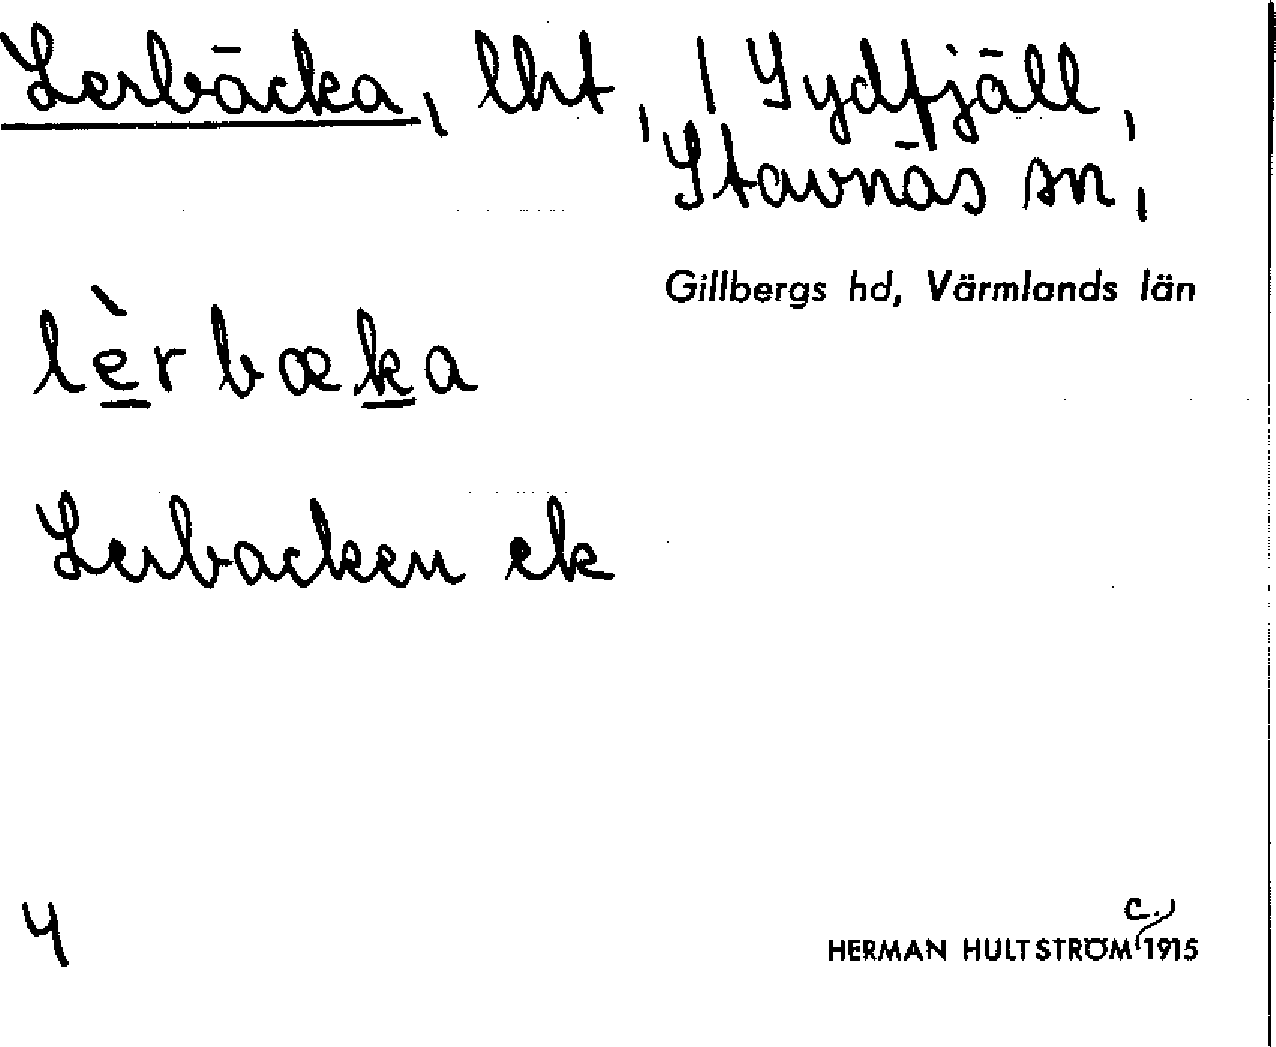 Lerbäcka, lht, 1 Sydfjäll,
Stavnäs sn,
Gillbergs hd, Värmlands län
lèrbæka
Lerbacken ek
4
c.
HERMAN HULTSTRÖM 1915